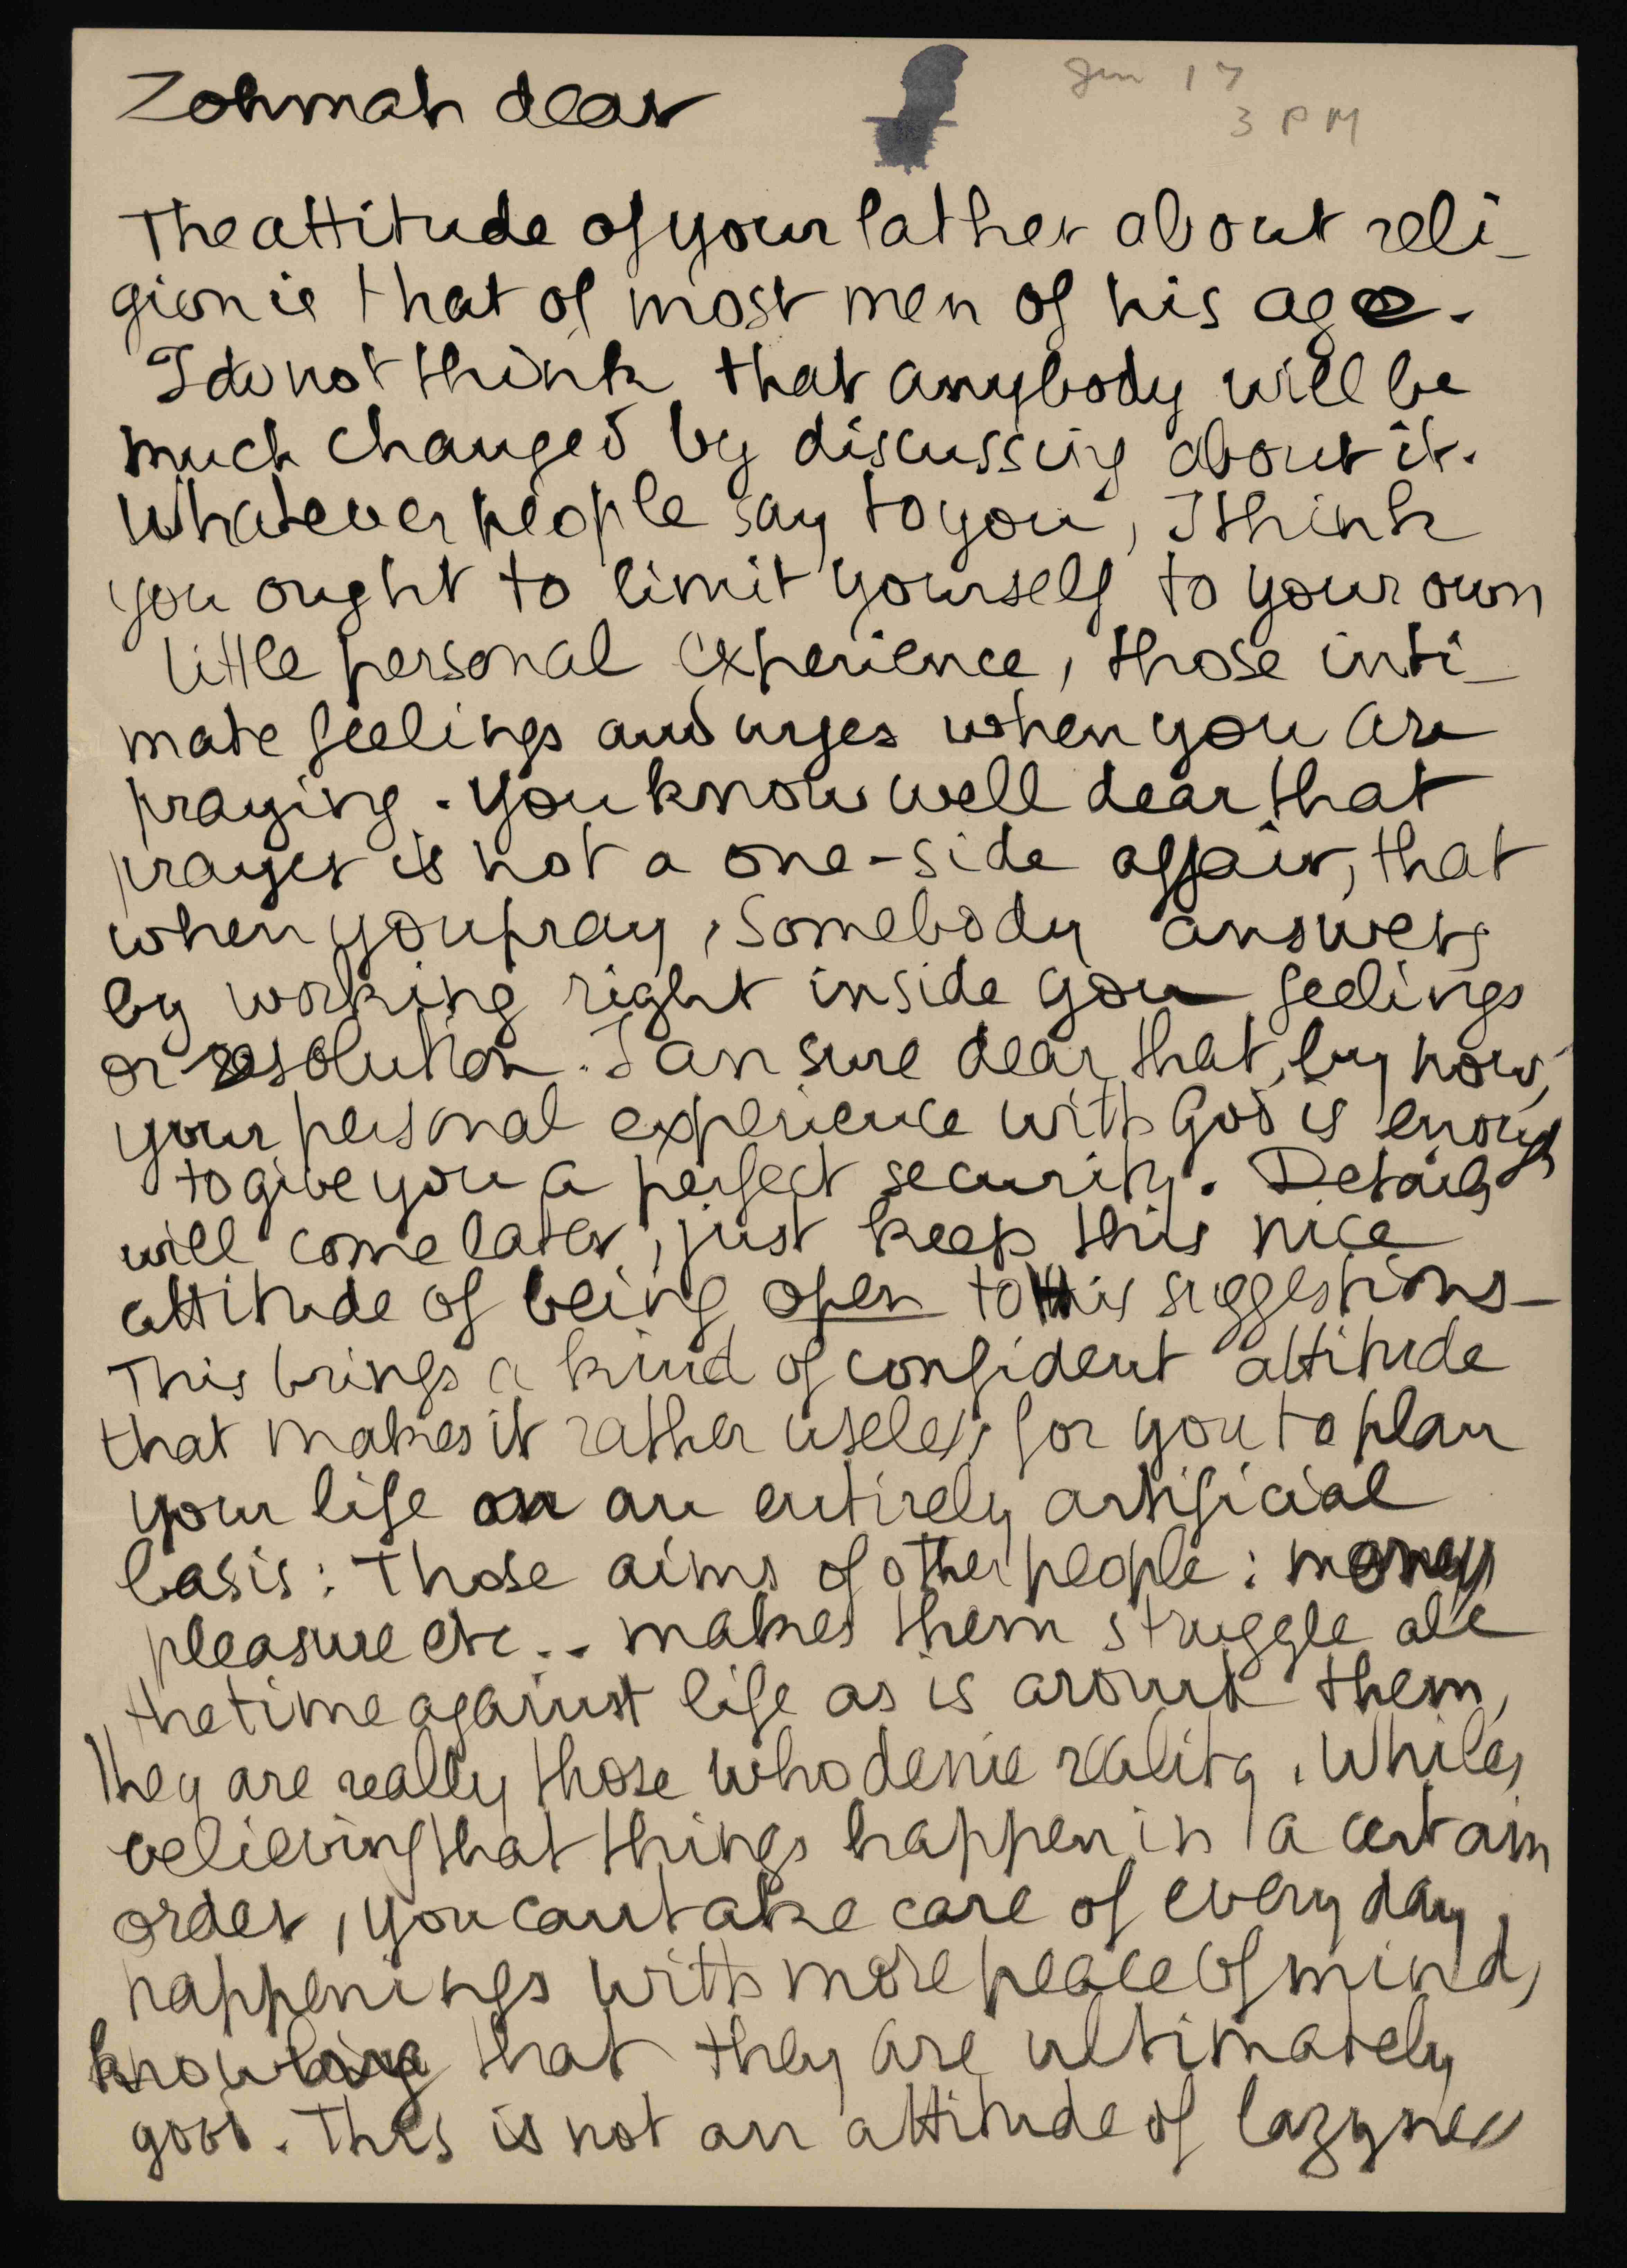 Zohmah dear
Jun 17
3 PM
The attitude of your father about reli-
gion is that of most men of his age.
I do not think that anybody will be
much changed by discussing about it.
Whatever people say to you, I think
you ought to limit yourself to your own
little personal experience, those inti-
mate feelings and urges when you are
praying. You know well dear that
prayer is not a one-side affair, that
when you pray, somebody answers
by working right inside you feelings
or resolution. I am sure dear that, by now,
your personal experience with God is enough
to give you a perfect security. Details
will come later, just keep this nice
attitude of being open to his suggestions-
This brings a kind of confident attitude
that makes it rather useless for you to plan
your life on an entirely artificial
basis: Those aims of other people: money
pleasure etc.. makes them struggle all
the time against life as is around them,
They are really those who denie reality. While,
believing that things happen in a certain
order, you can take care of every day
happenings with more peace of mind,
knowing that they are ultimately
good. This is not an attitude of lazyness